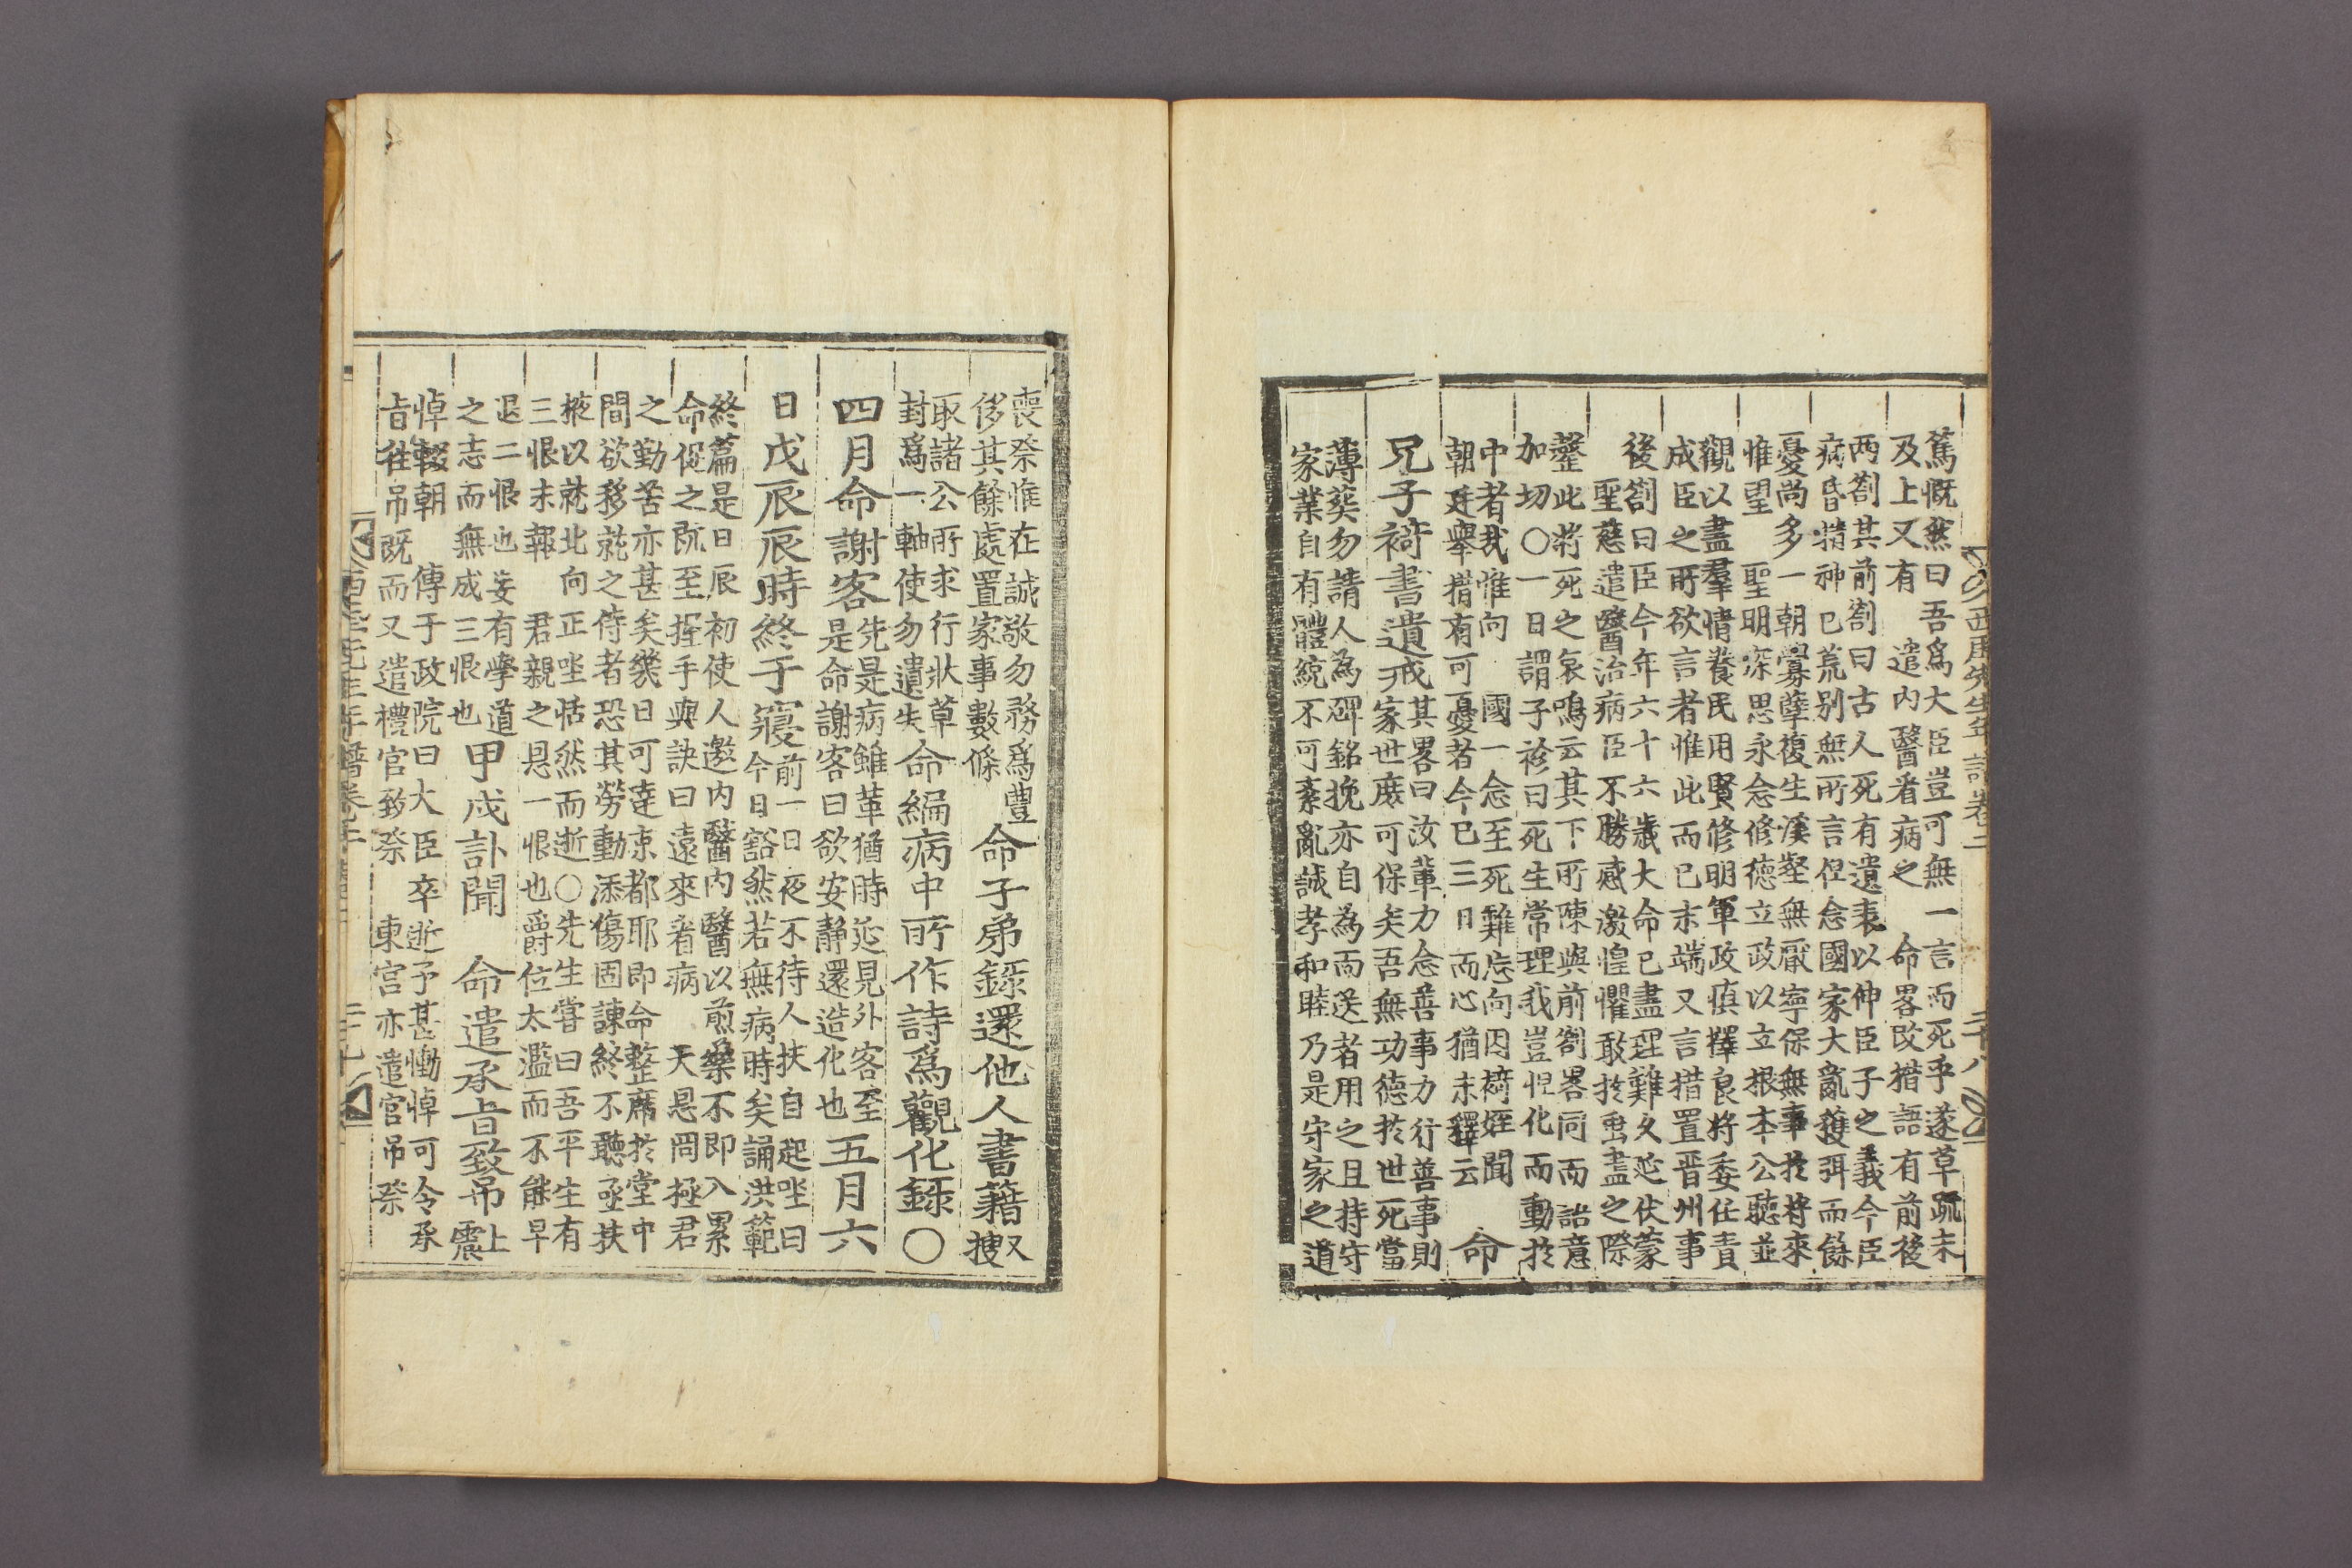 西厓先生年譜卷二
二十八
篤慨然曰吾爲大臣豈可無一言而死乎遂草疏未
及上又有 遣内醫看病之 命畧改措語有前後
两劄其前劄曰古人死有遺表以伸臣子之義今臣
病昏精神已荒别無所言但念國家大亂獲弭而餘
憂尚多一朝釁孽復生溪壑無厭寧保無事扵将來
惟望 聖明深思永念修德立政以立根本公聽並
觀以盡羣情養民用賢修明軍政慎擇良将委任責
成臣之所欲言者惟此而已末端又言措置晋州事
後劄曰臣今年六十六歲大命已盡理難久延伏蒙
聖慈遣醫治病臣不勝感激惶懼敢扵垂盡之際
罄此将死之哀鳴云其下所陳與前劄畧同而詣意
加切○一日謂子袗曰死生常理我豈怛化而動扵
中者哉惟向 國一念至死難忘向因䄎姪聞
朝廷舉措有可憂者今已三日而心猶未釋云 命
兄子䄎書遺戒
其畧曰汝輩力念善事力行善事則
家世庶可保矣吾無功德扵世死當
薄葬勿請人為碑銘挽亦自為而送者用之且持守
家業自有體統不可紊亂誠孝和睦乃是守家之道
喪祭惟在誠敬勿務爲豊
侈其餘處置家事數條
命子弟録還他人書籍
又
搜
取諸公所求行狀草
封爲一軸使勿遺失
命編病中所作詩爲觀化録○
四月命謝客
先是病雖革猶時延見外客至
是命謝客曰欲安靜還造化也
五月六
日戊辰辰時終于寢
前一日夜不待人扶自起坐曰
今日豁然若無病時矣誦洪範
終篇是日辰初使人邀内醫内醫以煎藥不即入累
命促之旣至握手與訣曰遠來看病 天恩罔極君
之勤苦亦甚矣幾日可達京都耶即命整席扵堂中
間欲移就之侍者恐其勞動添傷固諫終不聽亟扶
掖以就北向正坐恬然而逝○先生嘗曰吾平生有
三恨未報 君親之恩一恨也爵位太濫而不能早
退二恨也妄有學道
之志而無成三恨也
甲戌訃聞 命遣承㫖致吊
上
震
悼輟朝 傳于政院曰大臣卒逝予甚慟悼可令承
㫖往吊既而又遣禮官致祭 東宮亦遣官吊祭
西厓先生年譜卷二